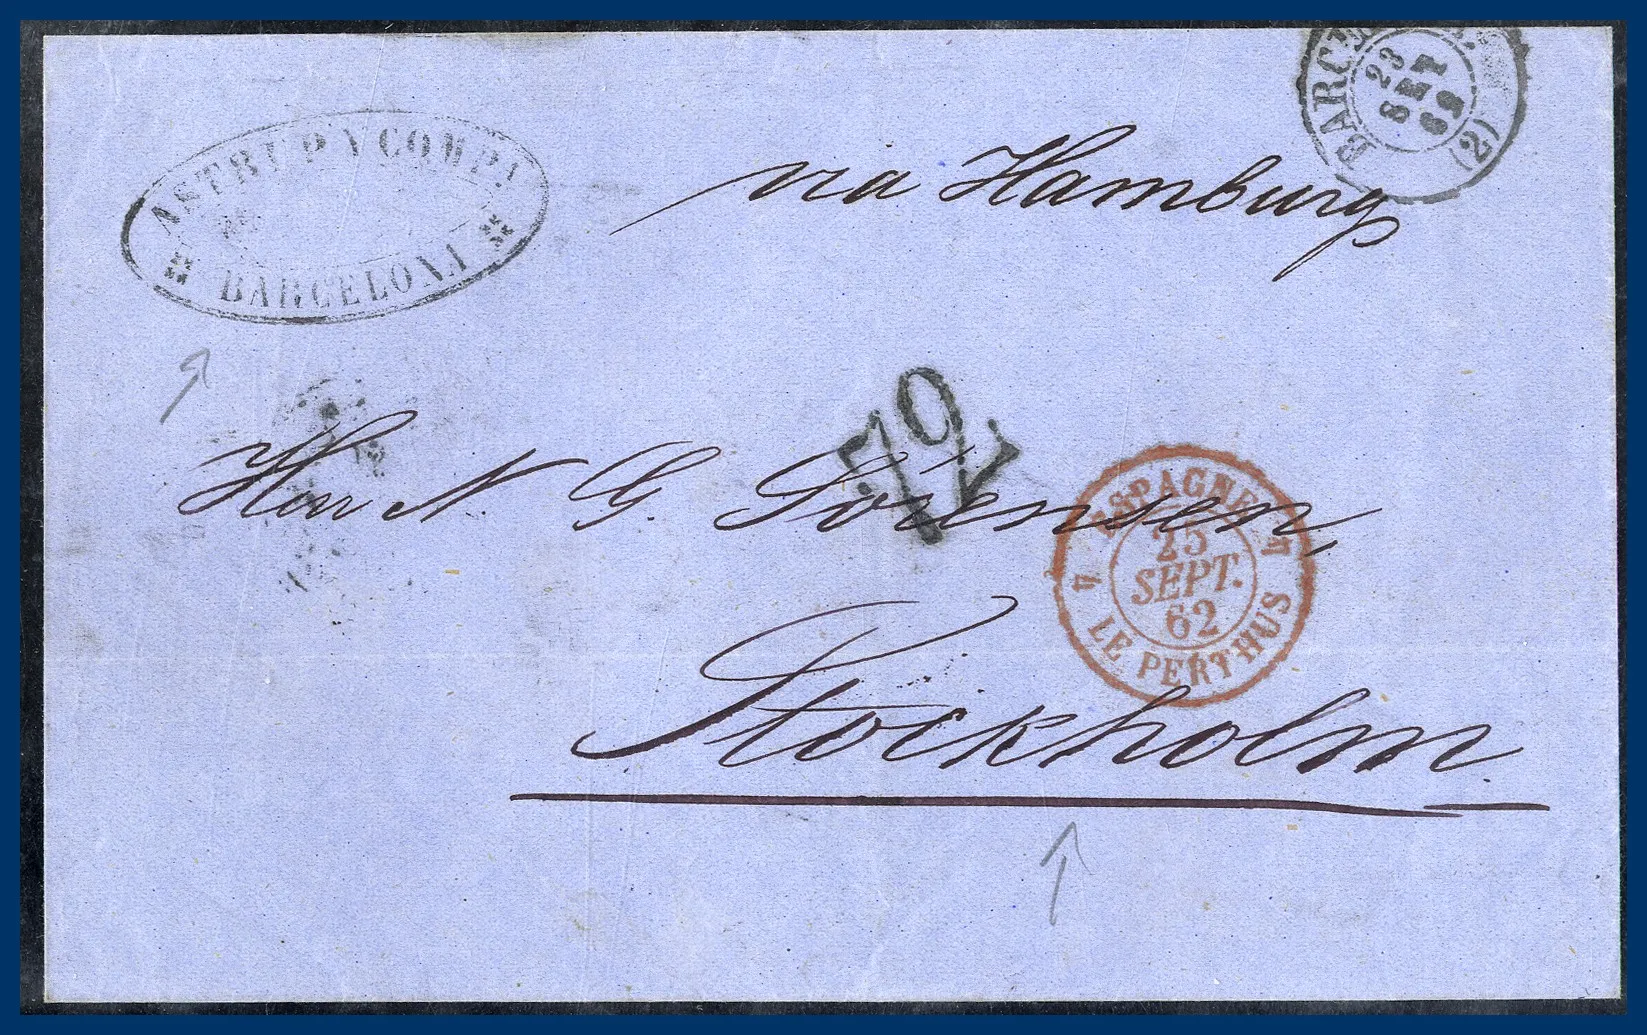 ASTRUP Y COMPA
BARCELONA
via Hamburg
BARC
23
SET
62
(2)
72
Herr N. G. Sörensen,
ESPAGNE
4 4
25
SEPT.
62
LE PERTHUS
Stockholm